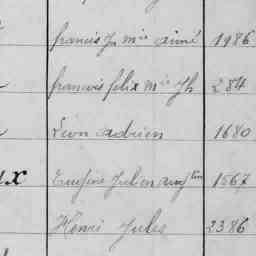 francis Jn Mie aimé 1986
francois felix Mie Jh 284
Léon adrien 1680
ux Eugène Julien aug tin 1567
Henri Jules 2386